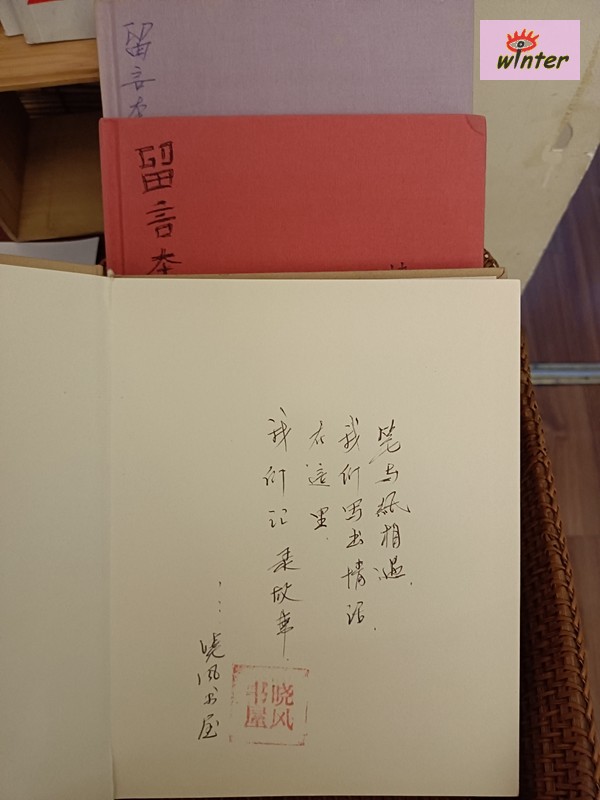 winter
留言本
留言本
笔与纸相遇.
我们写出情话.
在這里.
我们记录故事.
晓风书屋
晓风书屋